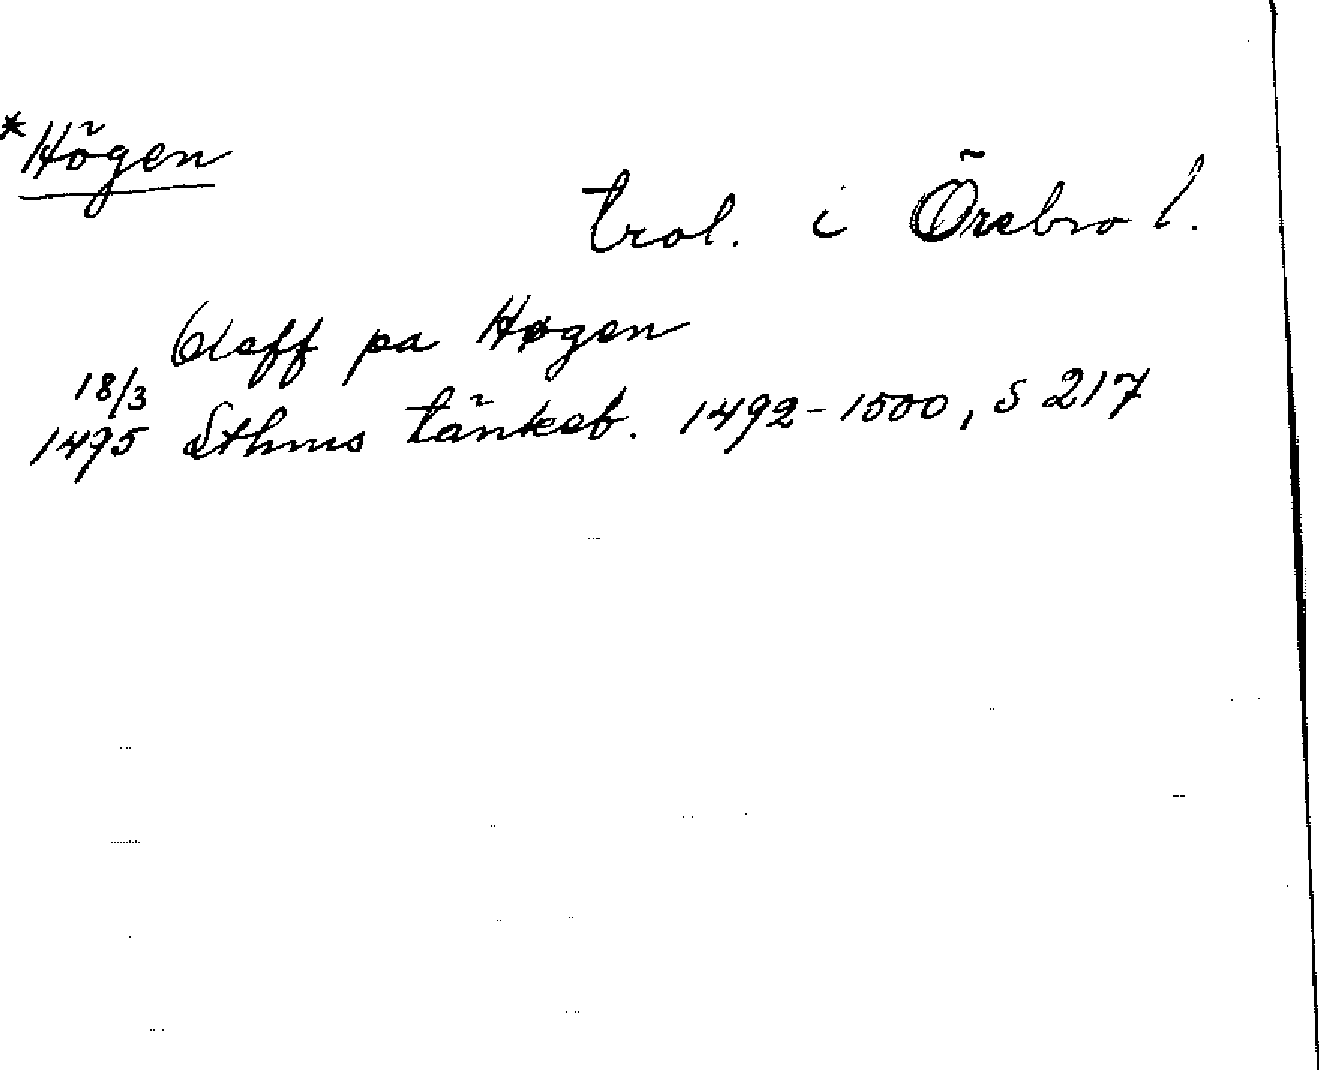 *Högen
trol. i Örebro l.
Olaff pa Høgen
18/3
1495 Sthms tänkeb. 1492-1500, s 217